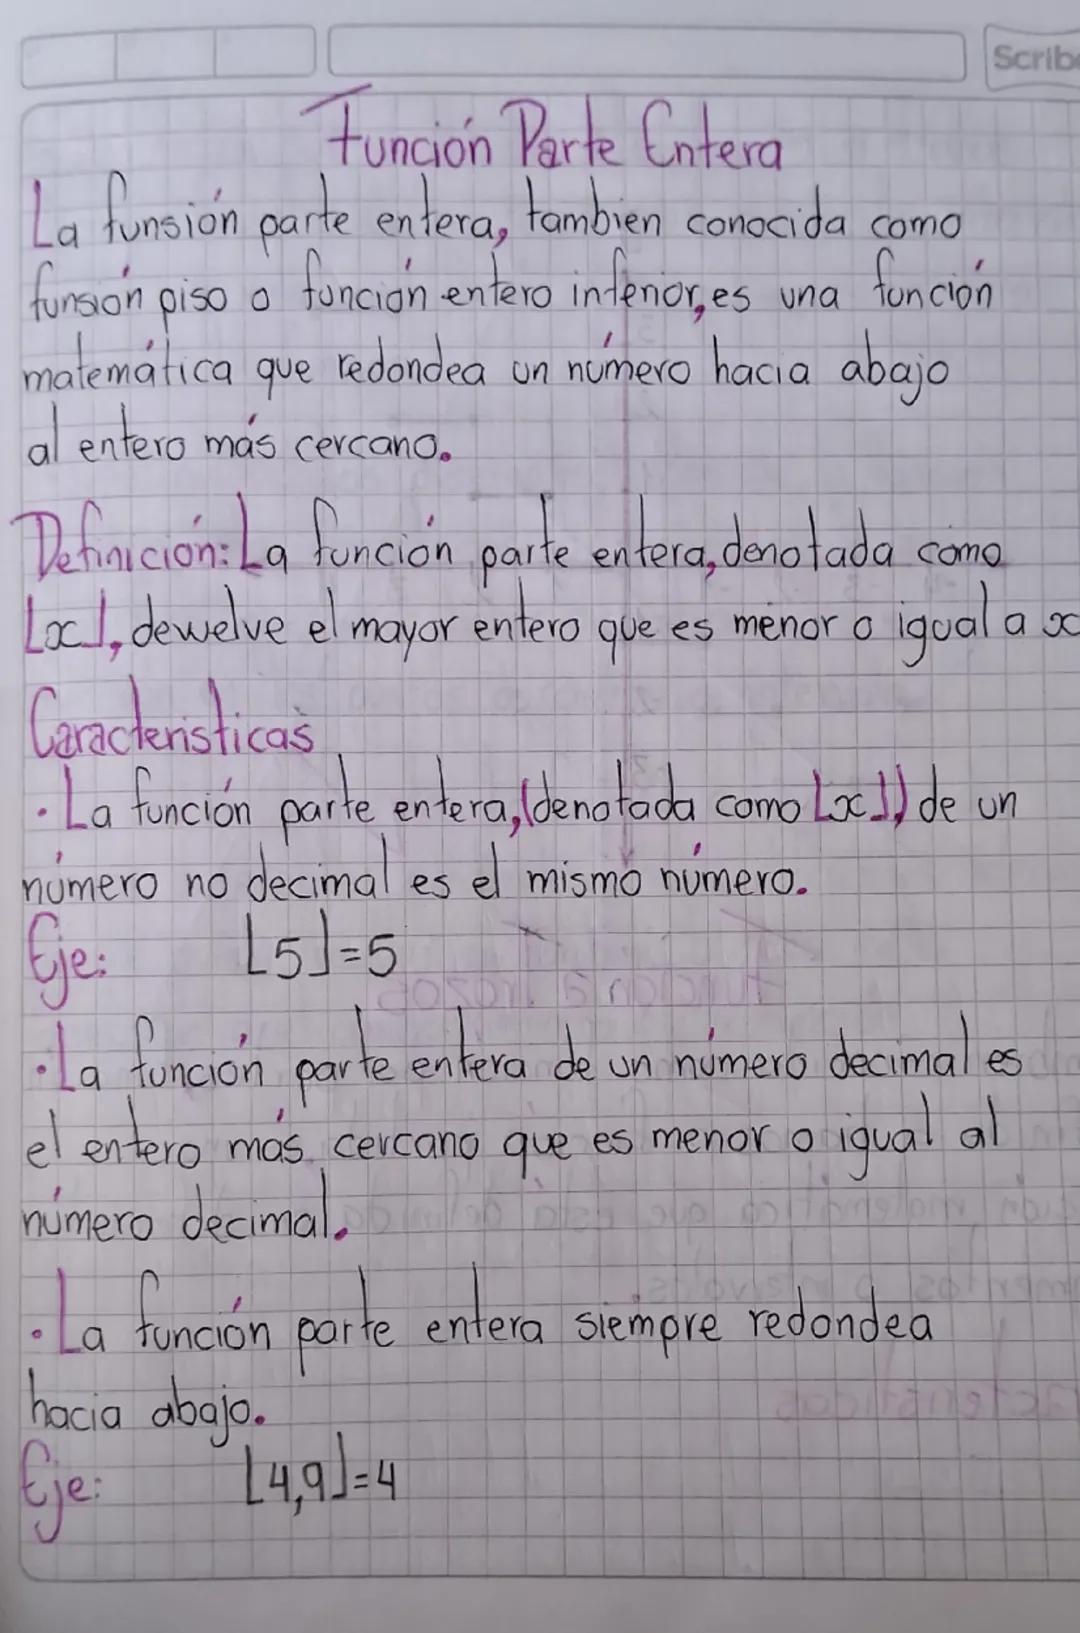 Scribe
Función Parte Entera
La funsión parte entera, tambien conocida como
funsión piso o función entero inferior, es una función
matemática que redondea un número hacia abajo
al entero más cercano.
Definición: La función parte entera, denotada como
⌊x⌋, devuelve el mayor entero que es menor o igual a x
Caracteristicas
· La función parte entera, (denotada como ⌊x⌋) de un
número no decimal es el mismo número.
Eje: ⌊5⌋=5
· La función parte entera de un número decimal es
el entero más cercano que es menor o igual al
número decimal.
· La función parte entera siempre redondea
hacia abajo.
Eje: ⌊4,9⌋=4